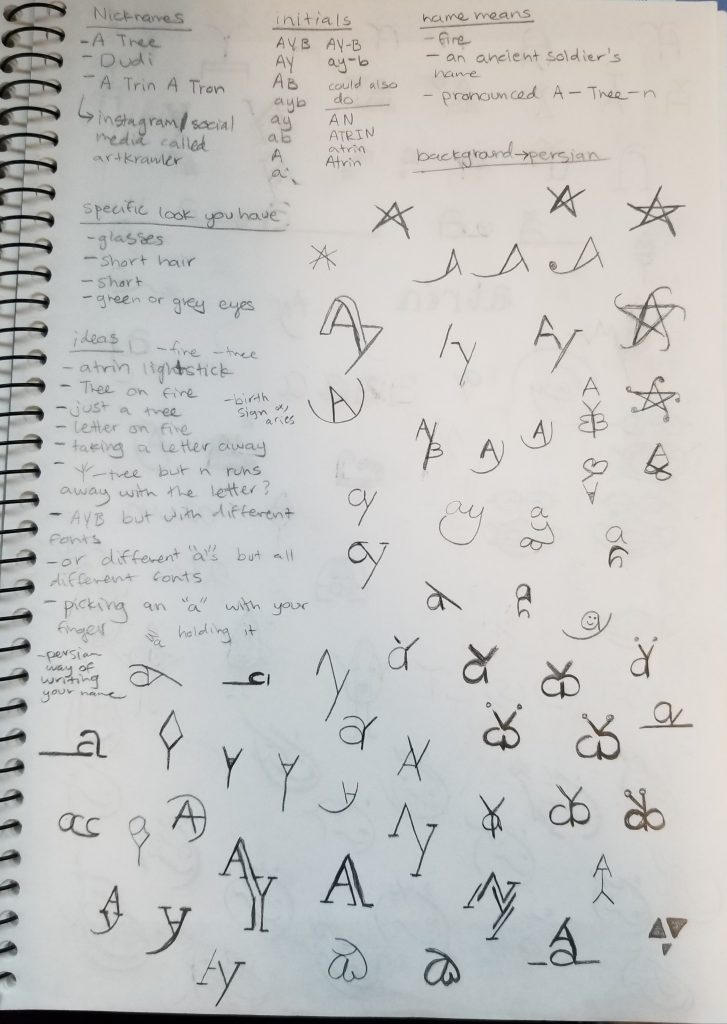 Nicknames
- A Tree
- Dudi
- A Trin A Tron
↳ instagram/social
media called
artkrawler
initials
AYB AY-B
AY ay-b
AB could also
ayb do
ay AN
ab ATRIN
A atrin
a Atrin
name means
- fire
- an ancient soldier's
name
- pronounced A-Tree-n
background→persian
specific look you have:
- glasses
- short hair
- short
- green or grey eyes
ideas
- fire - tree
- atrin lightstick
- Tree on fire
- just a tree
- letter on fire
- taking a letter away
- birth
sign ♈,
aries
- Y-tree but n runs
away with the letter?
- AYB but with different
fonts
- or different "a"s but all
different fonts
- picking an "a" with your
finger
a holding it
- persian
way of
writing
your name
Ay
Ay
Ay
A
A
Y
B
AYB
A
A
ay
ay
a
y
b
ay
a
a
a
a
a
A
AY
A
Ay
a